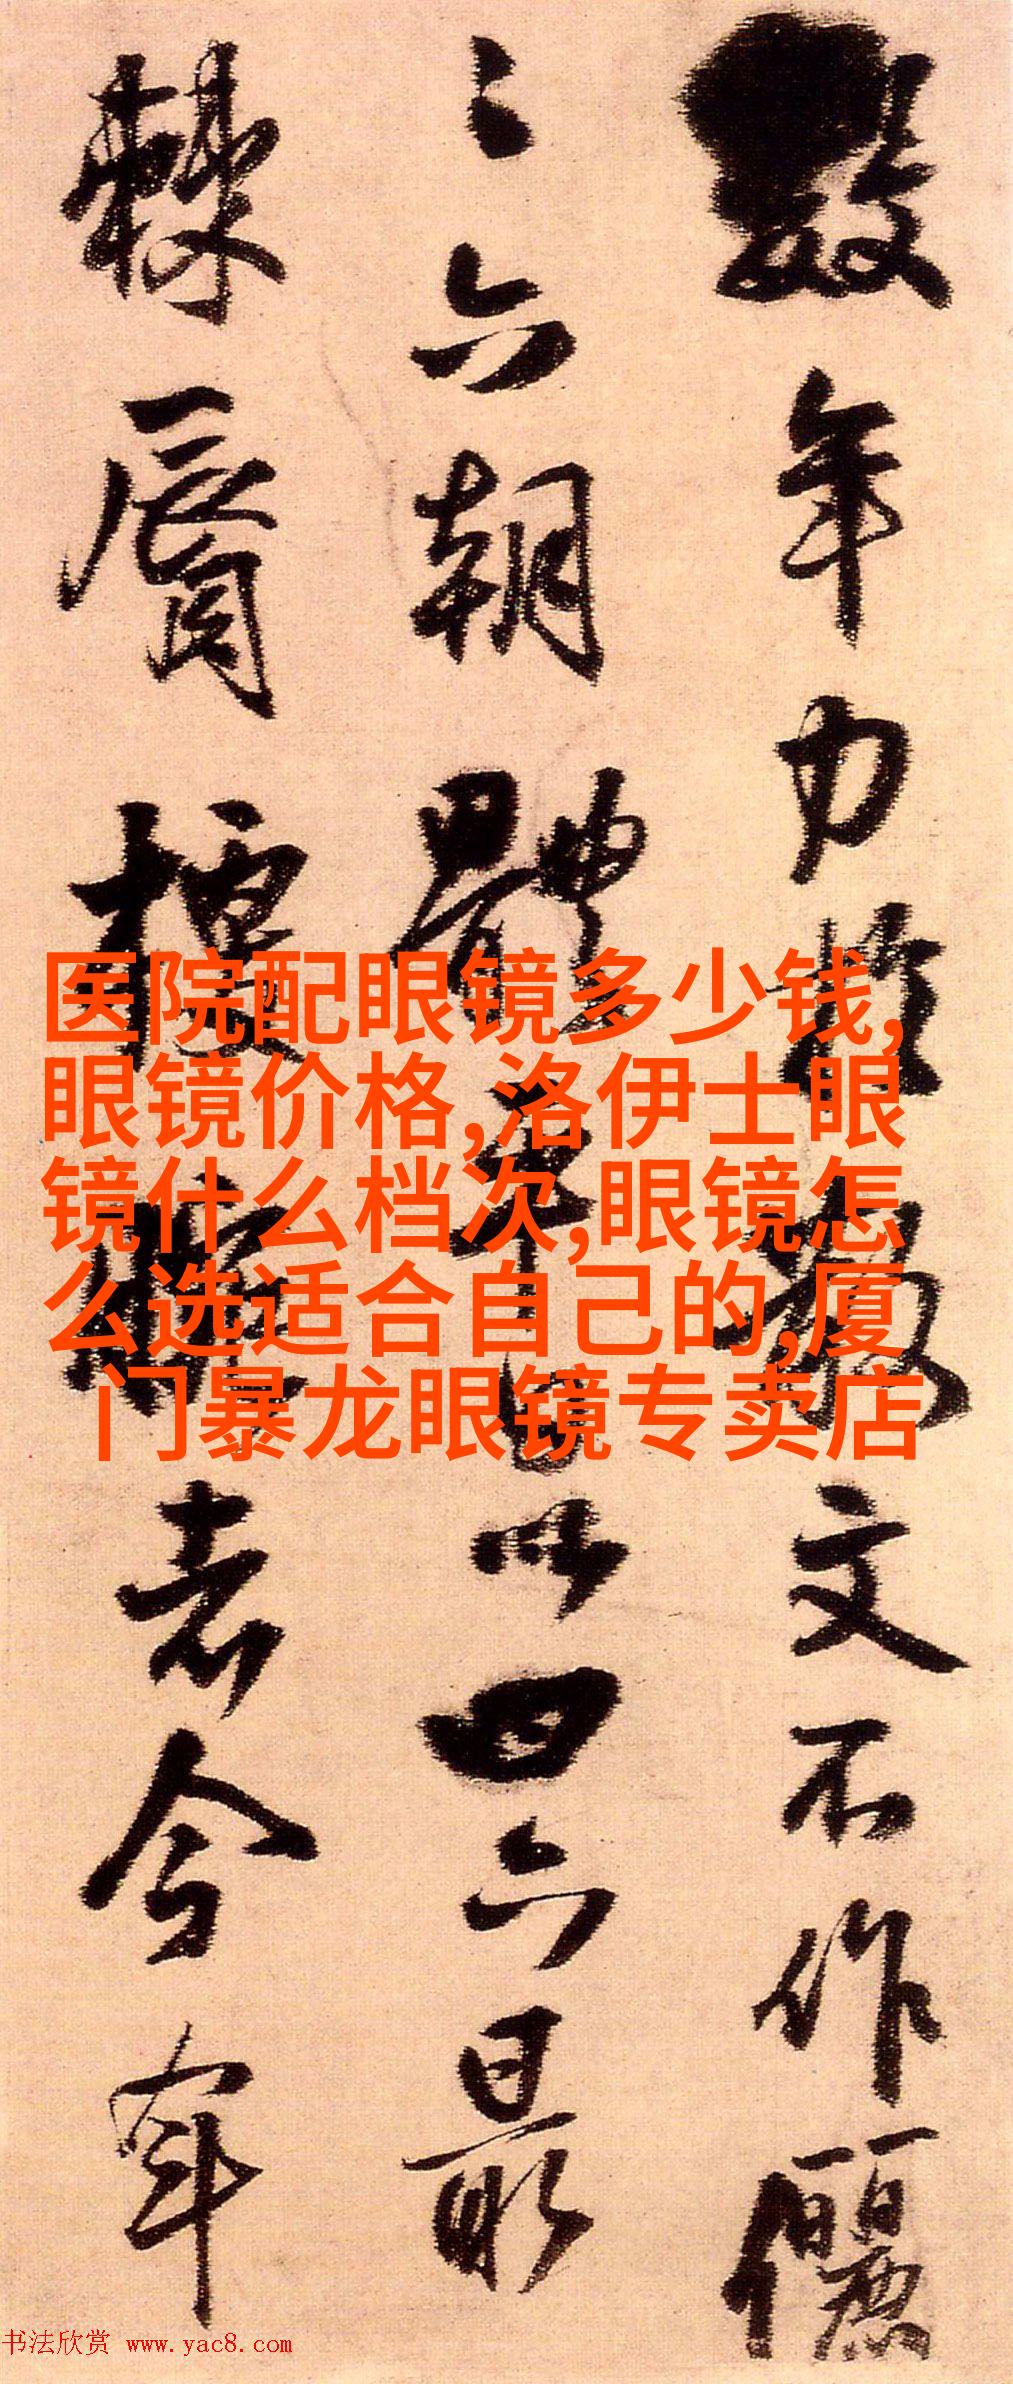 數年力於文不作儷
六朝體平以四六最
棘脣者今年
医院配眼镜多少钱,
眼镜价格,洛伊士眼
镜什么档次,眼镜怎
么选适合自己的,厦
门暴龙眼镜专卖店
书法欣赏 www.yac8.com